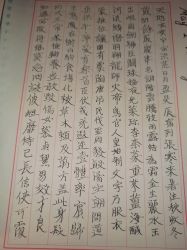 天地玄黃宇宙洪荒日月盈昃辰宿列張寒來暑往秋收冬
藏閏餘成歲律呂調陽雲騰致雨露結為霜金生麗水玉
出崑岡劍號巨闕珠稱夜光果珍李柰菜重芥薑海鹹
河淡鱗潛羽翔龍師火帝鳥官人皇始制文字乃服衣
裳推位讓國有虞陶唐弔民伐罪周發殷湯坐朝問道
垂拱平章愛育黎首臣伏戎羌遐邇壹體率賓歸
王鳴鳳在竹白駒食場化被草木賴及萬方蓋此身髮
四大五常恭惟鞠養豈敢毀傷女慕貞潔男效才良
知過必改得能莫忘罔談彼短靡恃己長信使可覆